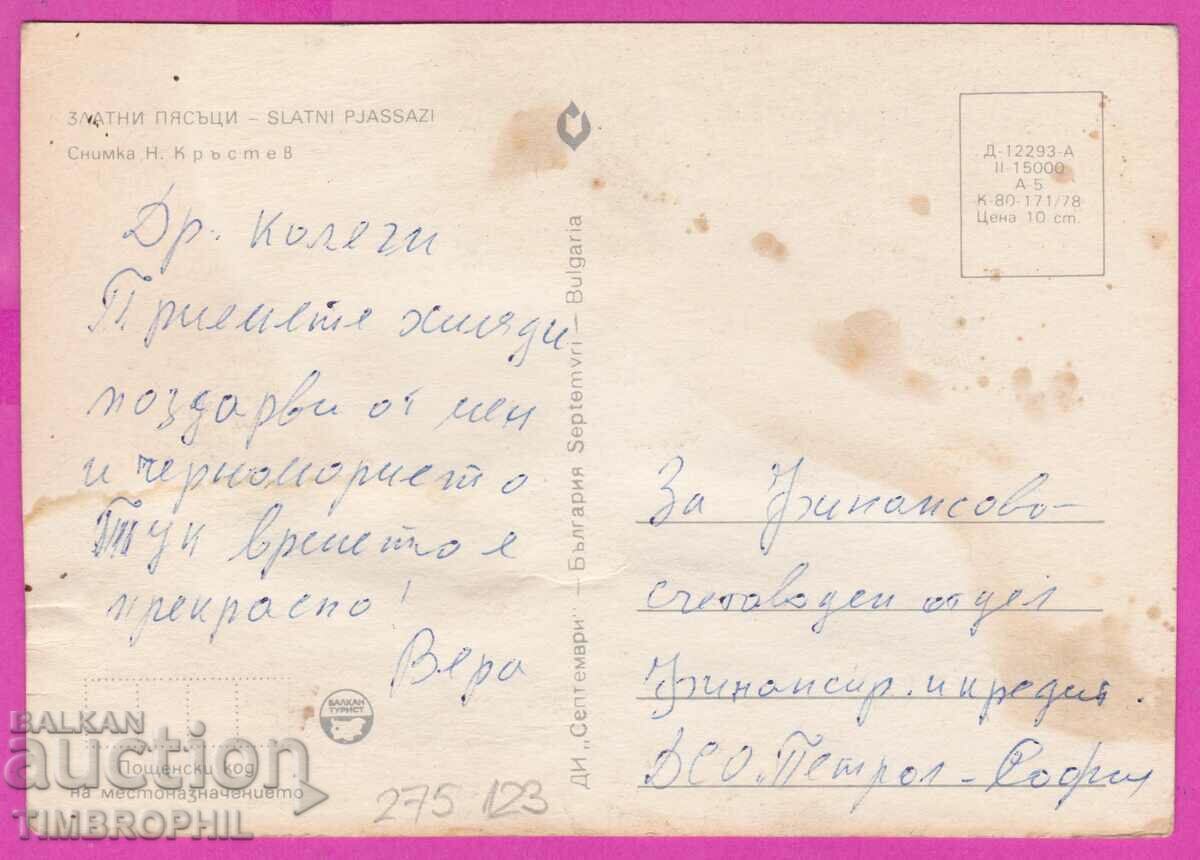 ЗЛАТНИ ПЯСЪЦИ – SLATNI PJASSAZI
Снимка Н. Кръстев
Др. колеги
Приемете хиляди
поздарви от мен
и черноморието
Тук времето е
прекрасно!
Вера
БАЛКАН
ТУРИСТ
Пощенски код
на местоназначението
275 123
ДИ „Септември" – България Septemvri – Bulgaria
Д-12293-А
II-15000
А 5
К-80-171/78
Цена 10 ст.
За Финансово-
счетоводен отдел
Финансир. и кредит.
ДСО „Петрол – София
BALKAN
auction
TIMBROPHIL